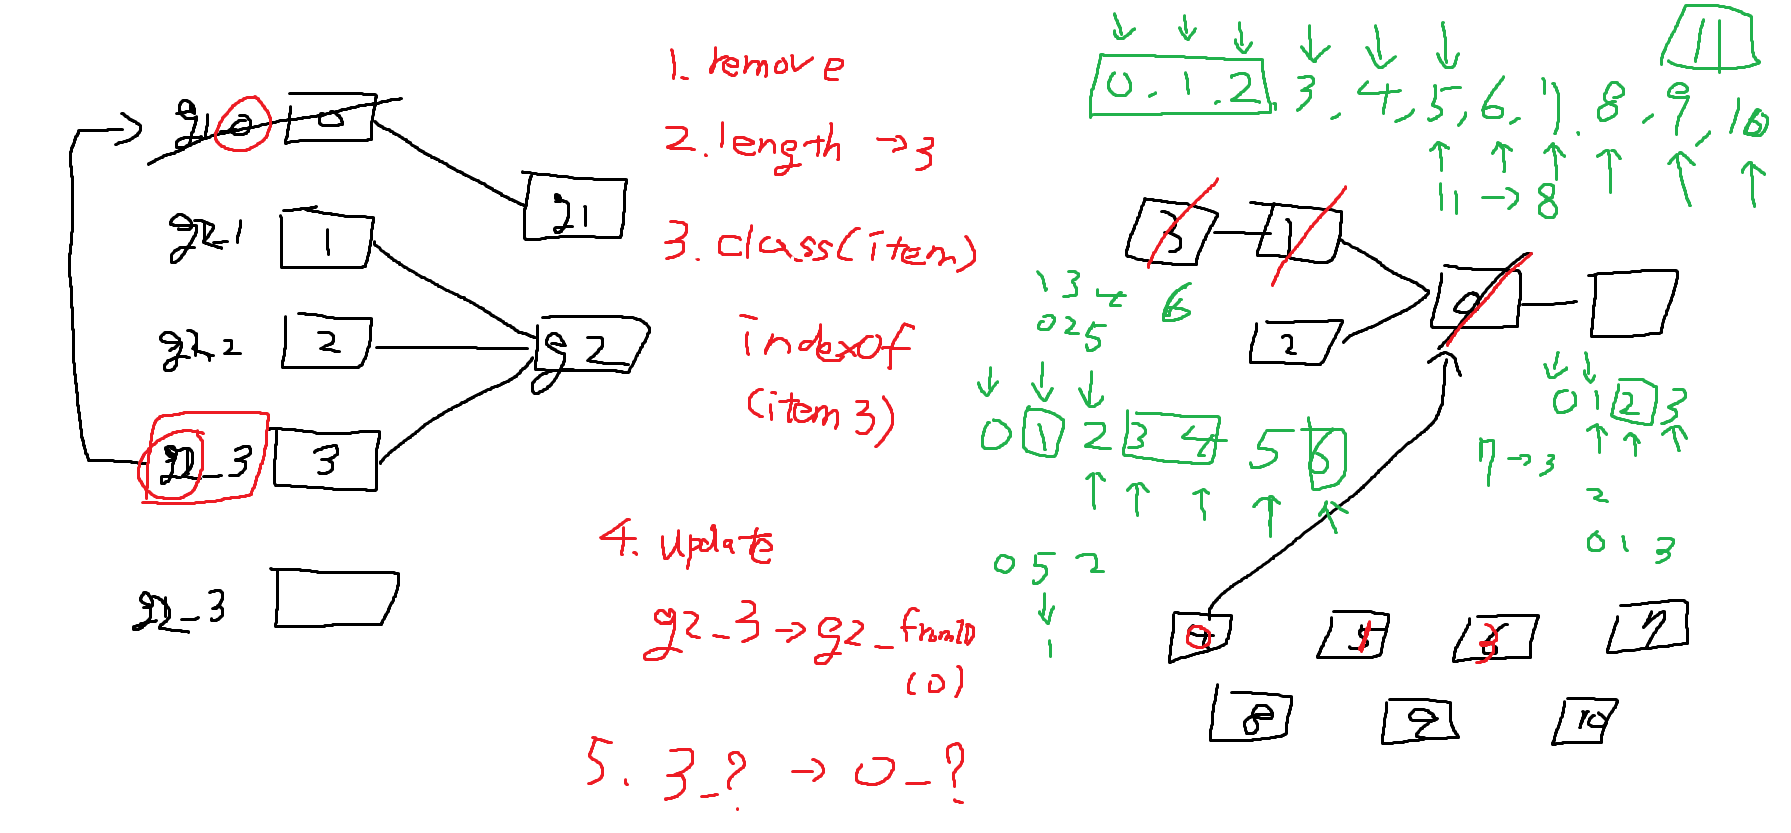 g1 0 0
g1
g2_1 1
g2_2 2
g2
g2_3 3
g2_3
1. remove
2. length → 3
3. class(item)
indexOf
(item 3)
4. update
g2_3 → g2_fromID
(0)
5. 3_? → 0_?
11
0, 1, 2, 3, 4, 5, 6, 7, 8, 9, 10
11 → 8
3 1
0
2
1 3 4 6
0 2 5
0 1 2 3 4 5 6
0 5 2
1
0 1 2 3
7 → 3
2
0 1 3
0 1 3 7
8 9 10